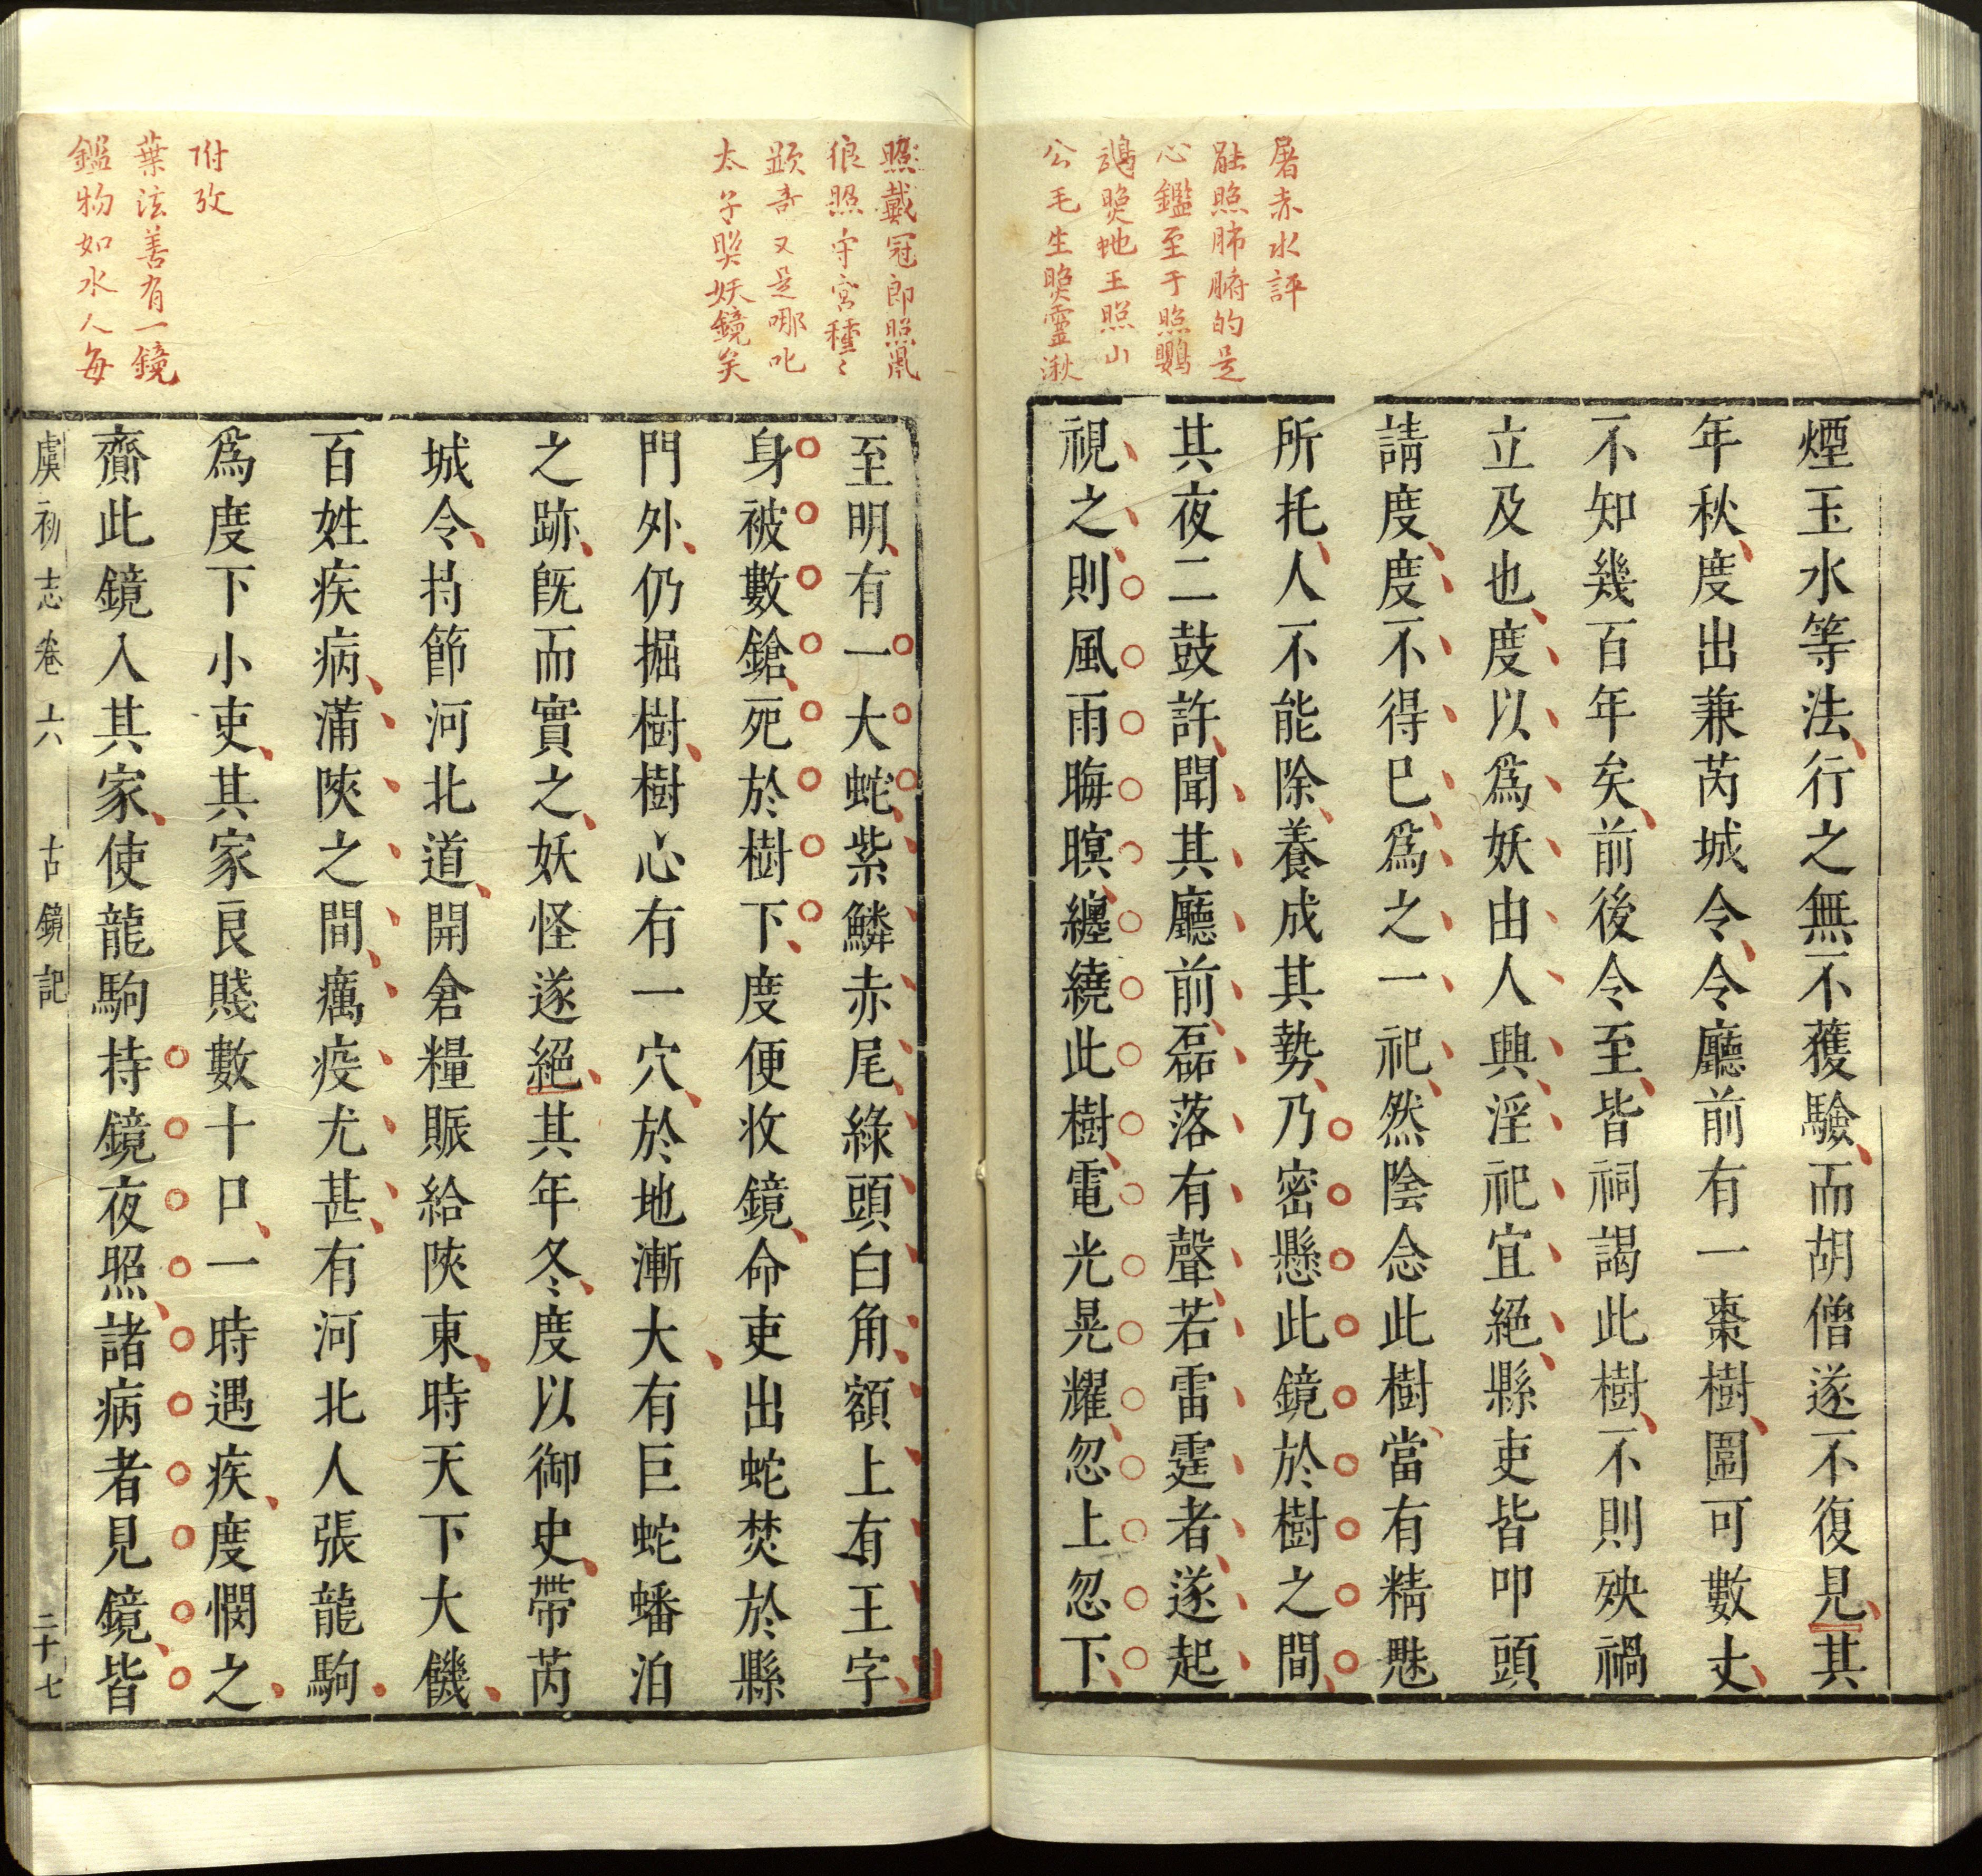 屠赤水評
能照肺腑的是
心鑑至于照鸚
鵡照虵王照山
公毛生照靈湫
煙玉水等法行之無不獲驗而胡僧遂不復見其
年秋度出兼芮城令令廳前有一棗樹圍可數丈
不知幾百年矣前後令至皆祠謁此樹不則殃禍
立及也度以爲妖由人興淫祀宜絕縣吏皆叩頭
請度度不得已爲之一祀然陰念此樹當有精魅
所托人不能除養成其勢乃密懸此鏡於樹之間
其夜二鼓許聞其廳前磊落有聲若雷霆者遂起
視之則風雨晦暝纏繞此樹電光晃耀忽上忽下
照戴冠郎照鼠
狼照守宮種〻
顯奇又是哪叱
太子照妖鏡矣
附攷
葉法善有一鏡
鑑物如水人每
至明有一大蛇紫鱗赤尾綠頭白角額上有王字
身被數鎗死於樹下度便收鏡命吏出蛇焚於縣
門外仍掘樹樹心有一穴於地漸大有巨蛇蟠泊
之跡既而實之妖怪遂絕其年冬度以御史帶芮
城令持節河北道開倉糧賑給陝東時天下大饑
百姓疾病蒲陝之間癘疫尤甚有河北人張龍駒
爲度下小吏其家良賤數十口一時遇疾度憫之
齎此鏡入其家使龍駒持鏡夜照諸病者見鏡皆
虞初志卷六 古鏡記 二十七